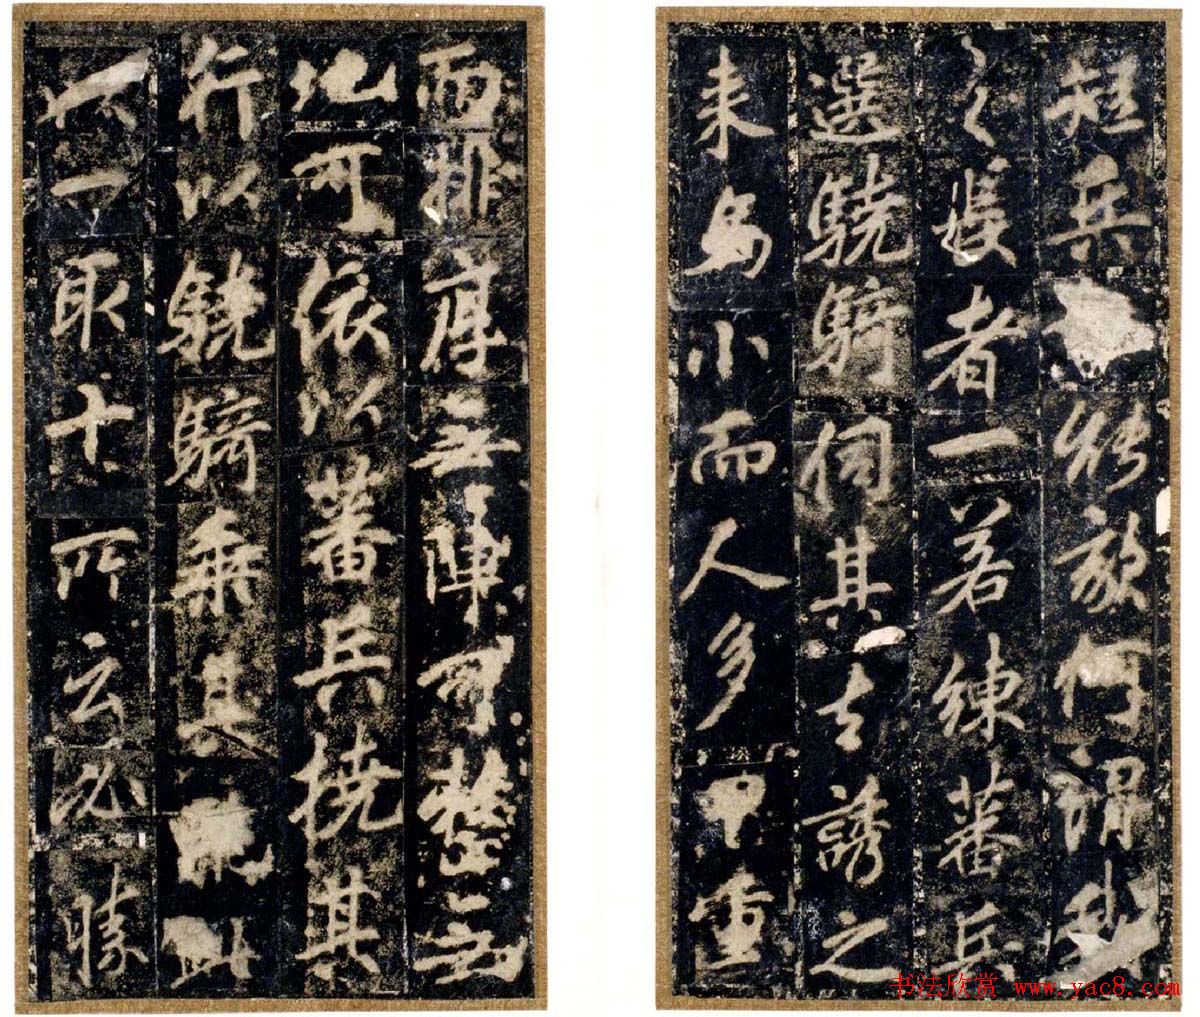 短兵能敵何謂我
之長者一若練蕃兵
選驍騎伺其去誘之
来馬小而人多甲重
而排厚無陣可整無
地可依以蕃兵撓其
行以驍騎乘其亂此
以一取十所云必勝
书法欣赏 www.yac8.com